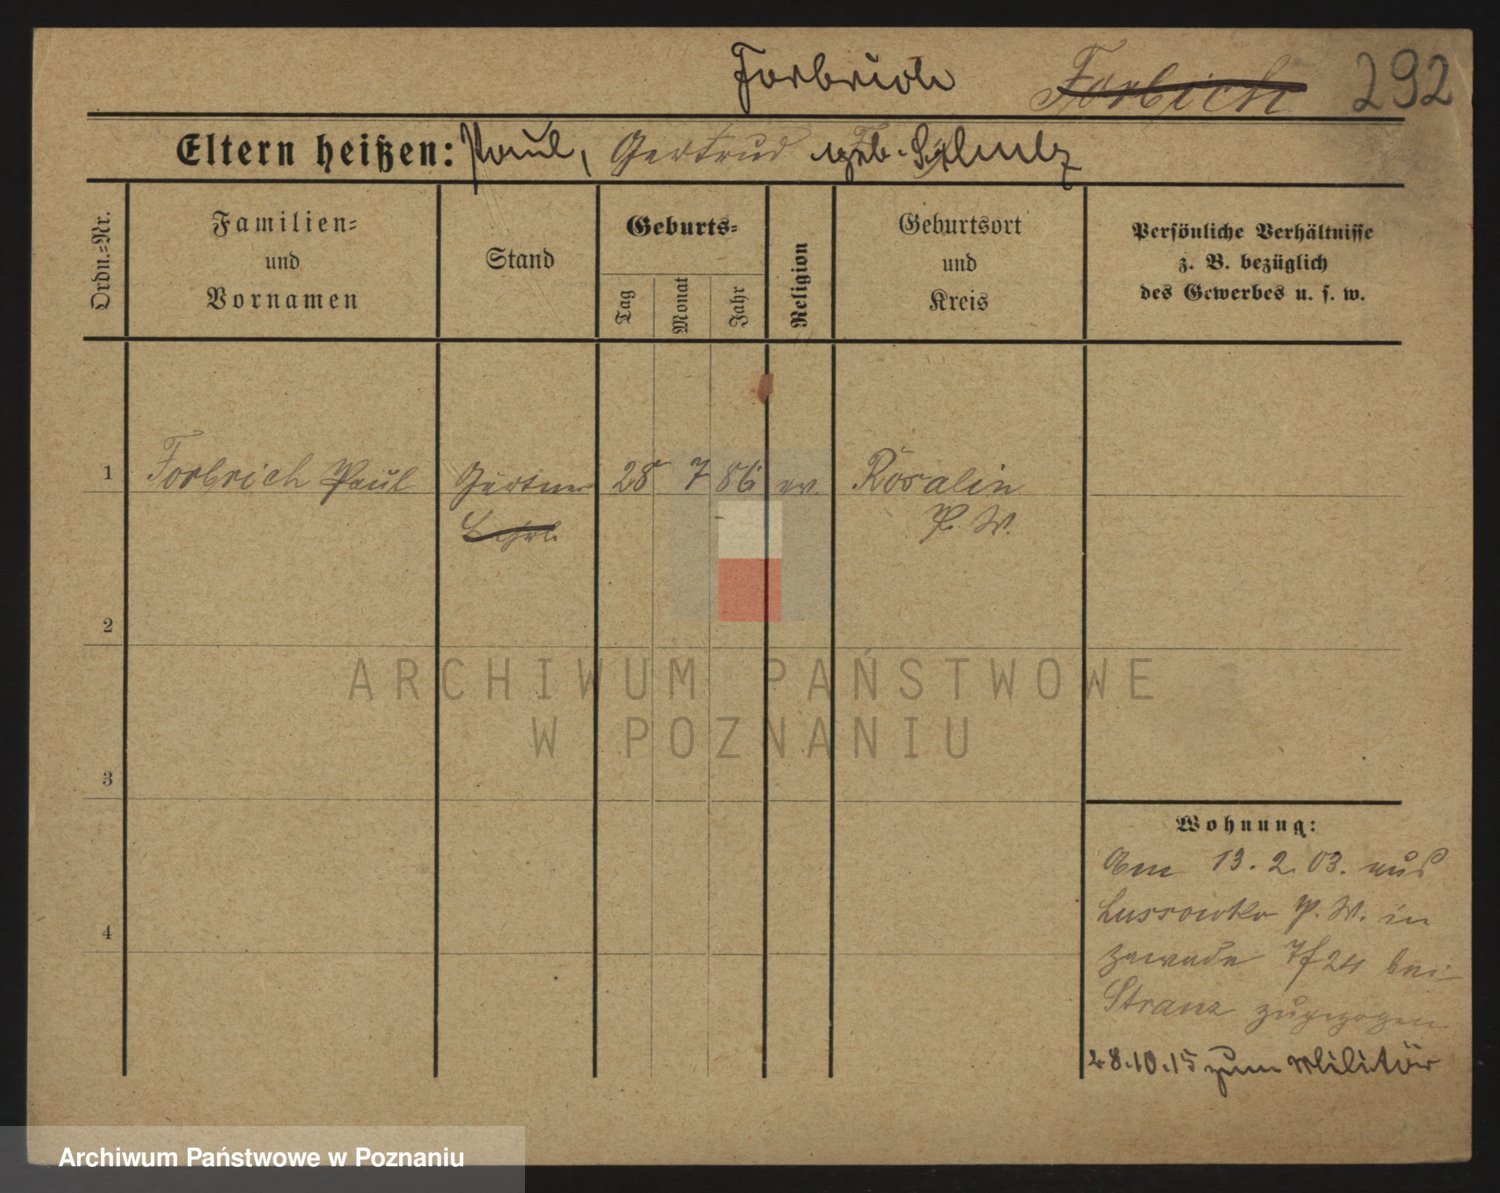 Forbrich Forbich 292
Eltern heißen: Paul, Gertrud geb. Schulz
Ordn.-Nr.
Familien-
und
Vornamen
Stand
Geburts-
Tag
Monat
Jahr
Religion
Geburtsort
und
Kreis
Persönliche Verhältnisse
z. B. bezüglich
des Gewerbes u. s. w.
1 Forbrich Paul Gärtner 28 7 86 ev. Rosalin
P. W.
2
3
4
Wohnung:
Am 13. 2. 03. aus
Lussowko P. W. in
Zawade 7f 24 bei
Stranz zugezogen
28.10.15 zum Militär
ARCHIWUM PAŃSTWOWE
W POZNANIU
Archiwum Państwowe w Poznaniu